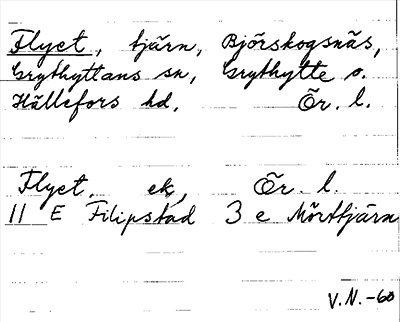 Flyet, tjärn, Björskogsnäs,
Grythyttans sn, Grythytte o.
Hällefors hd, Ör. l.
Flyet, ek, Ör. l.
11 E Filipstad 3 e Mörttjärn
V.N.-60